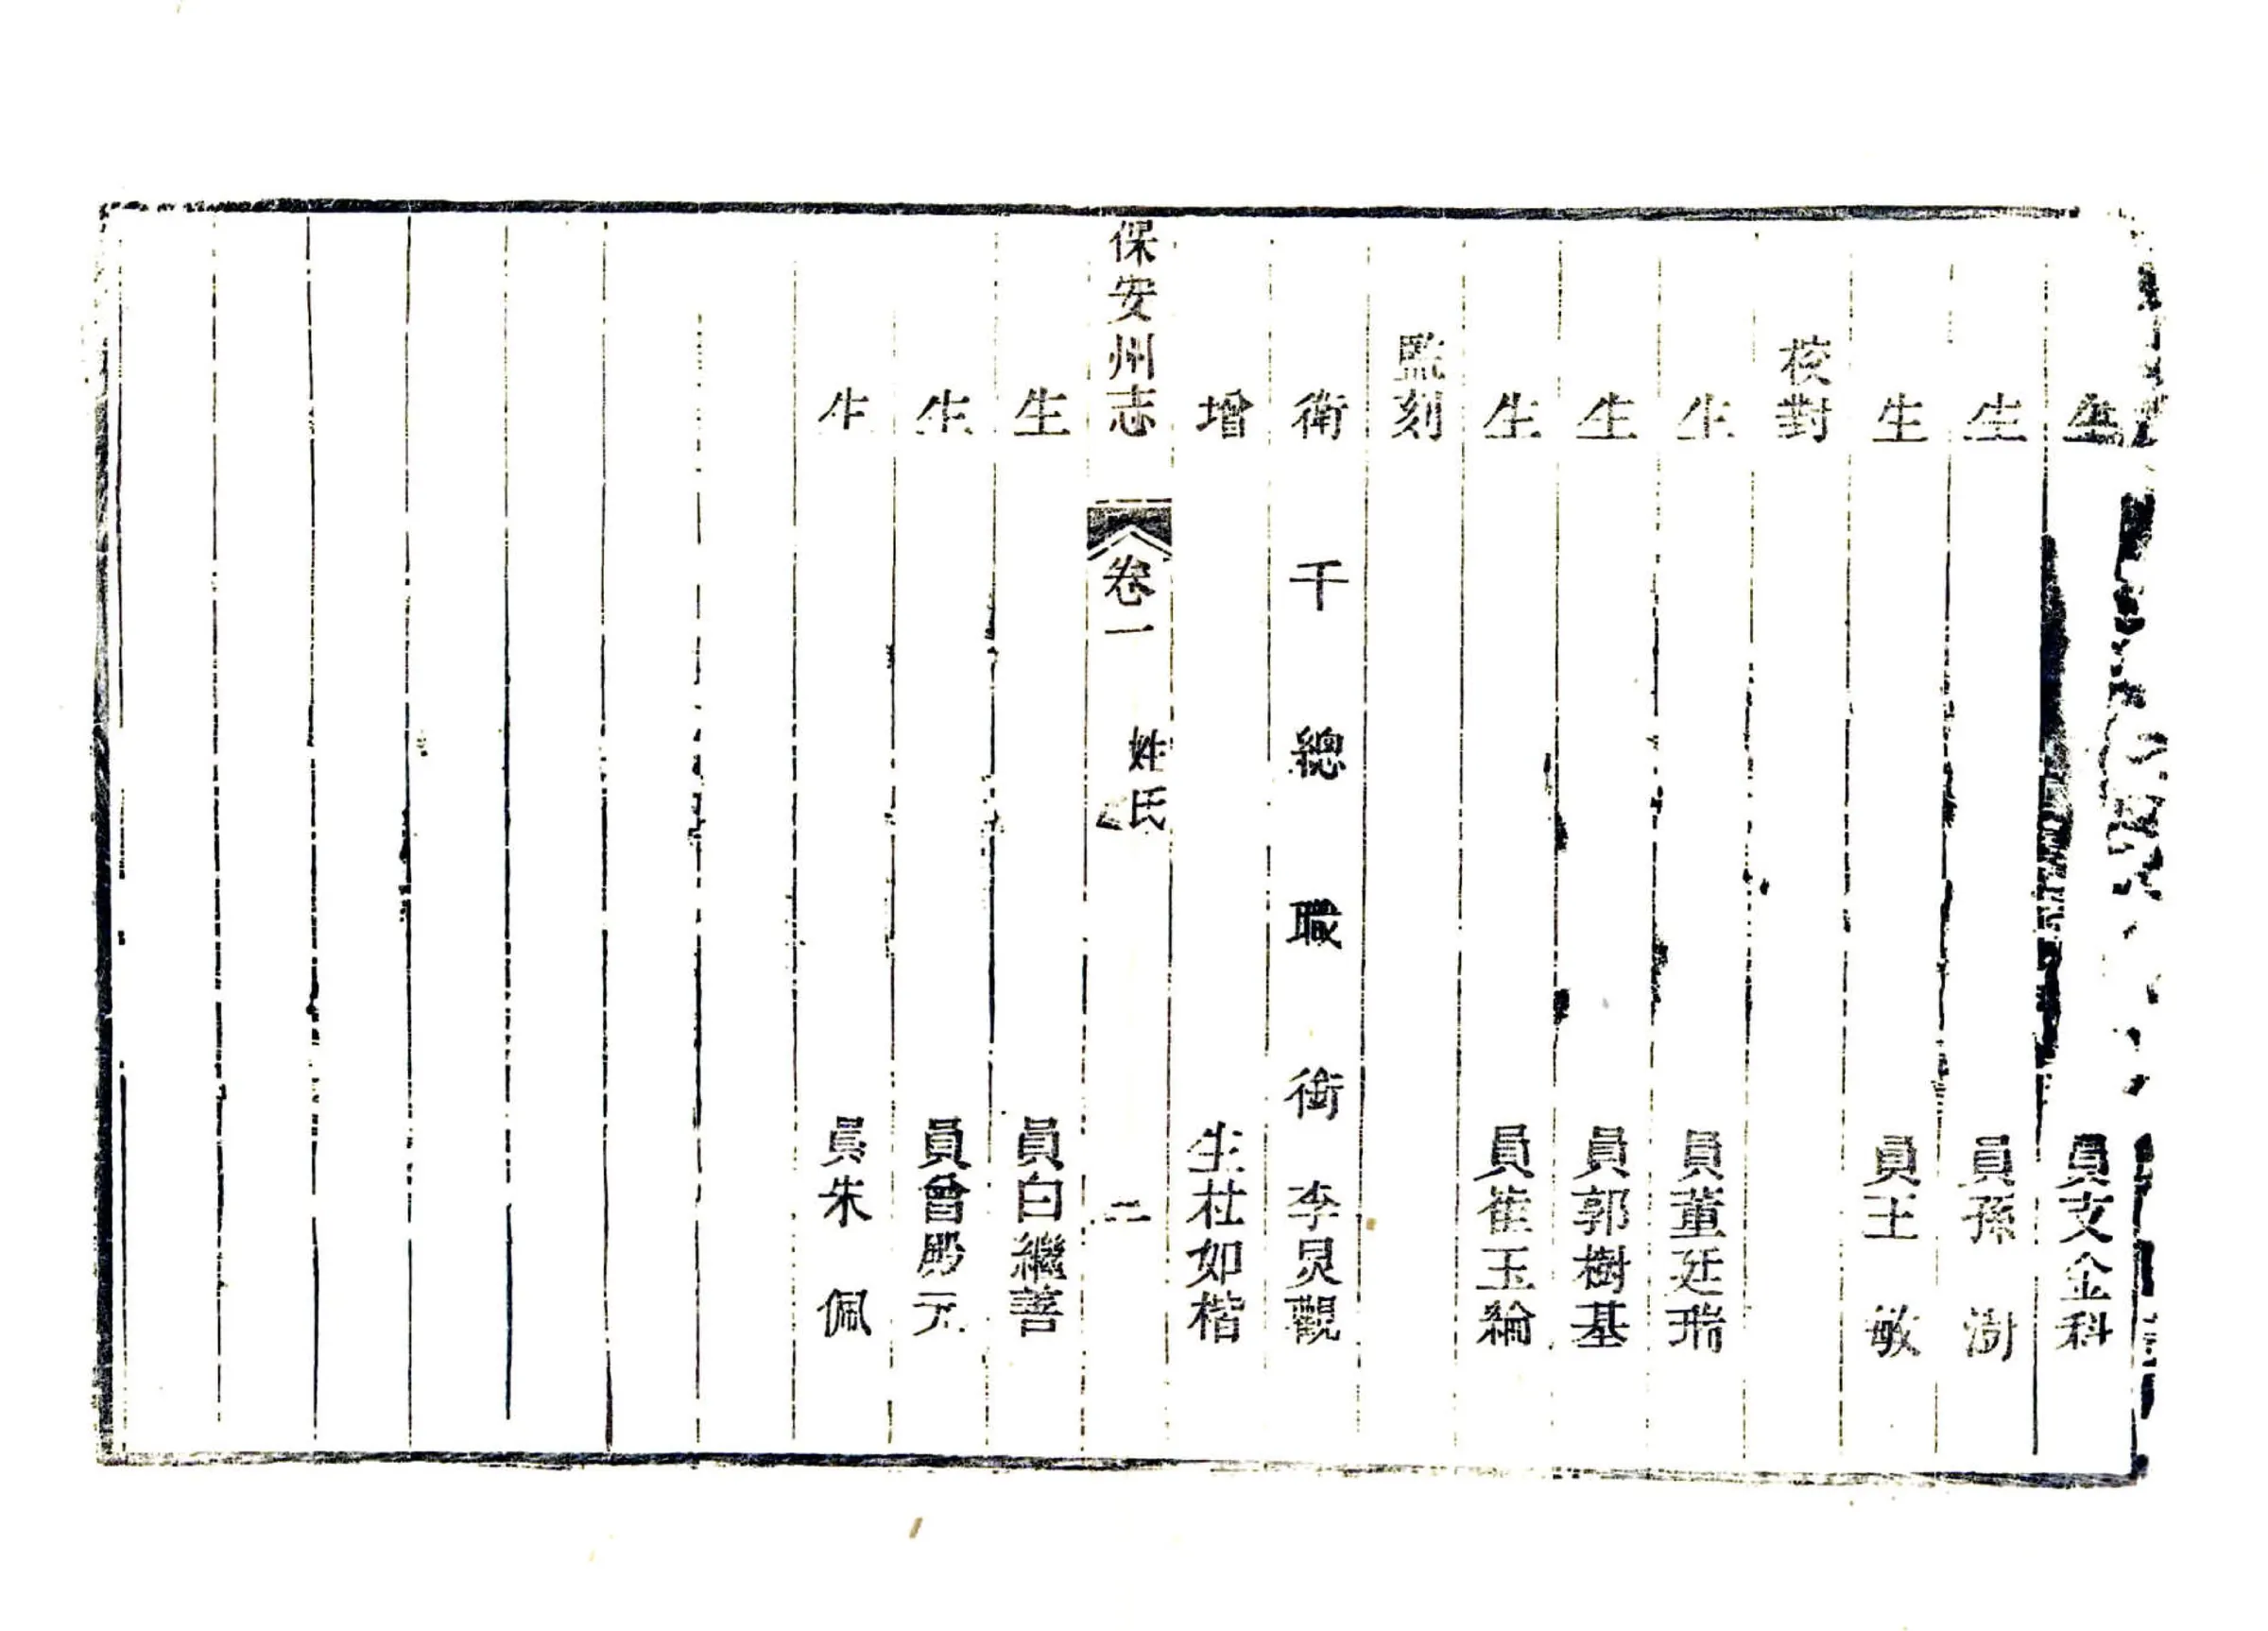 生員支金科
生員孫澍
生員王敏
校對
生員董廷瑞
生員郭樹基
生員崔玉綸
監刻
衛千總職銜李炅觀
增生杜如楷
保安州志 卷一 姓氏 二
生員白繼善
生員曾勝元
生員朱佩